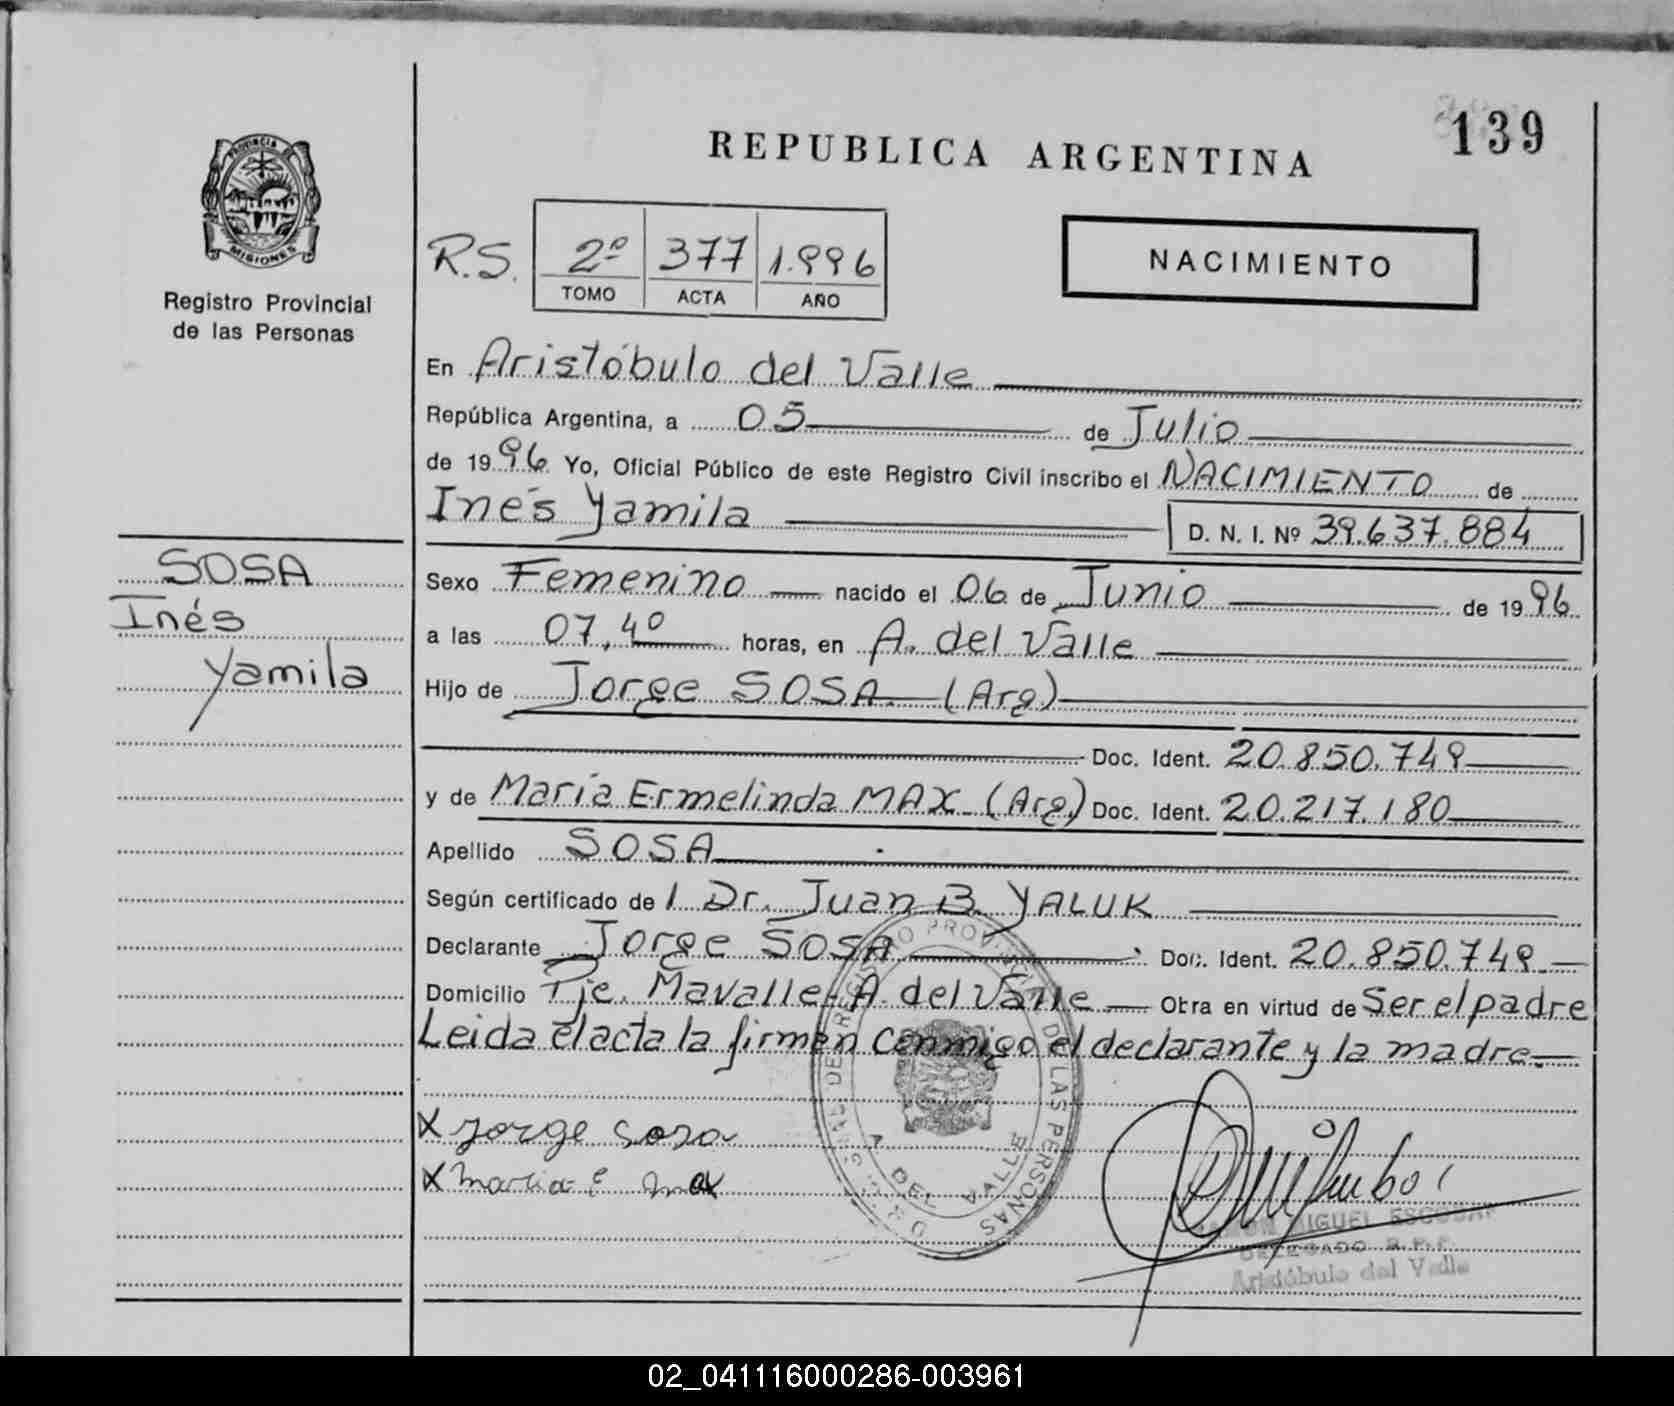 139
REPUBLICA ARGENTINA
PROVINCIA DE
MISIONES
Registro Provincial
de las Personas
R.S. 2º 377 1.996
TOMO ACTA AÑO
NACIMIENTO
En Aristóbulo del Valle
República Argentina, a 05 de Julio
de 1996 Yo, Oficial Público de este Registro Civil inscribo el NACIMIENTO de
Inés Yamila D. N. I. Nº 39.637.884
SOSA
Inés
Yamila
Sexo Femenino nacido el 06 de Junio de 1996
a las 07,40 horas, en A. del Valle
Hijo de Jorge SOSA (Arg)
Doc. Ident. 20.850.749
y de María Ermelinda MAX (Arg.) Doc. Ident. 20.217.180
Apellido SOSA
Según certificado de l Dr. Juan B. YALUK
Declarante Jorge SOSA Doc. Ident. 20.850.749
Domicilio Pje. Mavalle-A. del Valle Obra en virtud de Ser el padre
Leida el acta la firman conmigo el declarante y la madre.
X Jorge Sosa
X Maria E Max
A DEL VALLE
MIGUEL ESCOBAR
DELEGADO R.P.P.
Aristóbulo del Valle
02_041116000286-003961